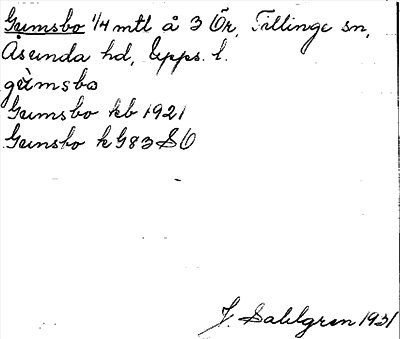 Gumsbo 1/4 mtl å 3 Ör, Tillinge sn,
Åsunda hd, Upps. l.
gùmsbo
Gumsbo kb 1921
Gumsbo k G83 SO
J. Sahlgren 1931